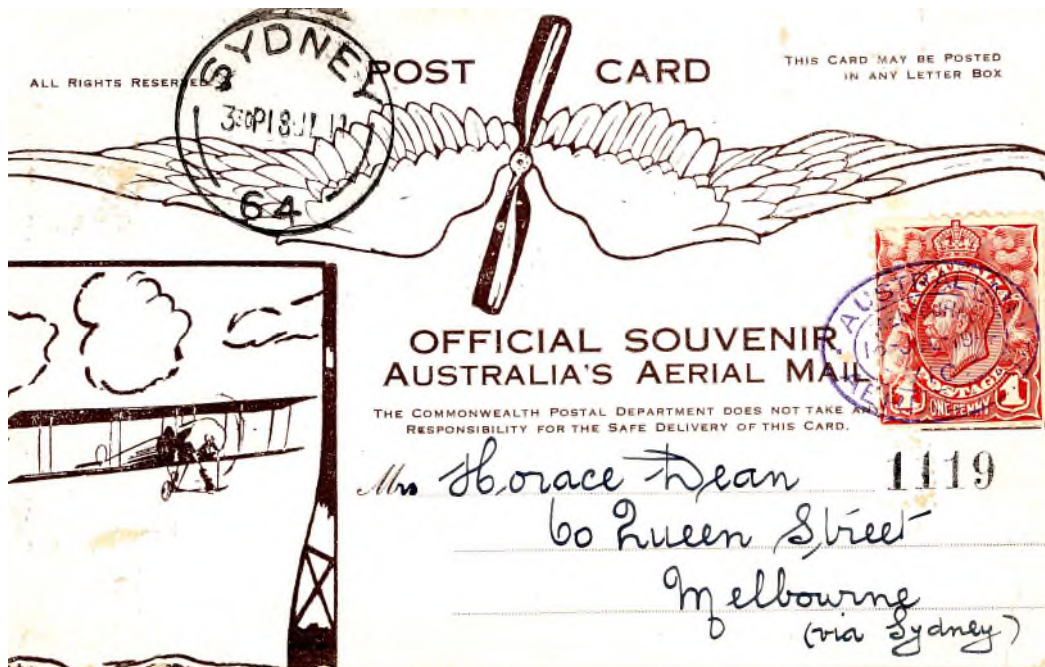 SYDNEY
64
POST CARD
ALL RIGHTS RESERVED
THIS CARD MAY BE POSTED
IN ANY LETTER BOX
OFFICIAL SOUVENIR
AUSTRALIA'S AERIAL MAIL
THE COMMONWEALTH POSTAL DEPARTMENT DOES NOT TAKE ANY
RESPONSIBILITY FOR THE SAFE DELIVERY OF THIS CARD.
AUSTRALIA
POSTAGE
1 ONE PENNY 1
1119
Mrs Horace Dean
60 Queen Street
Melbourne
(via Sydney)